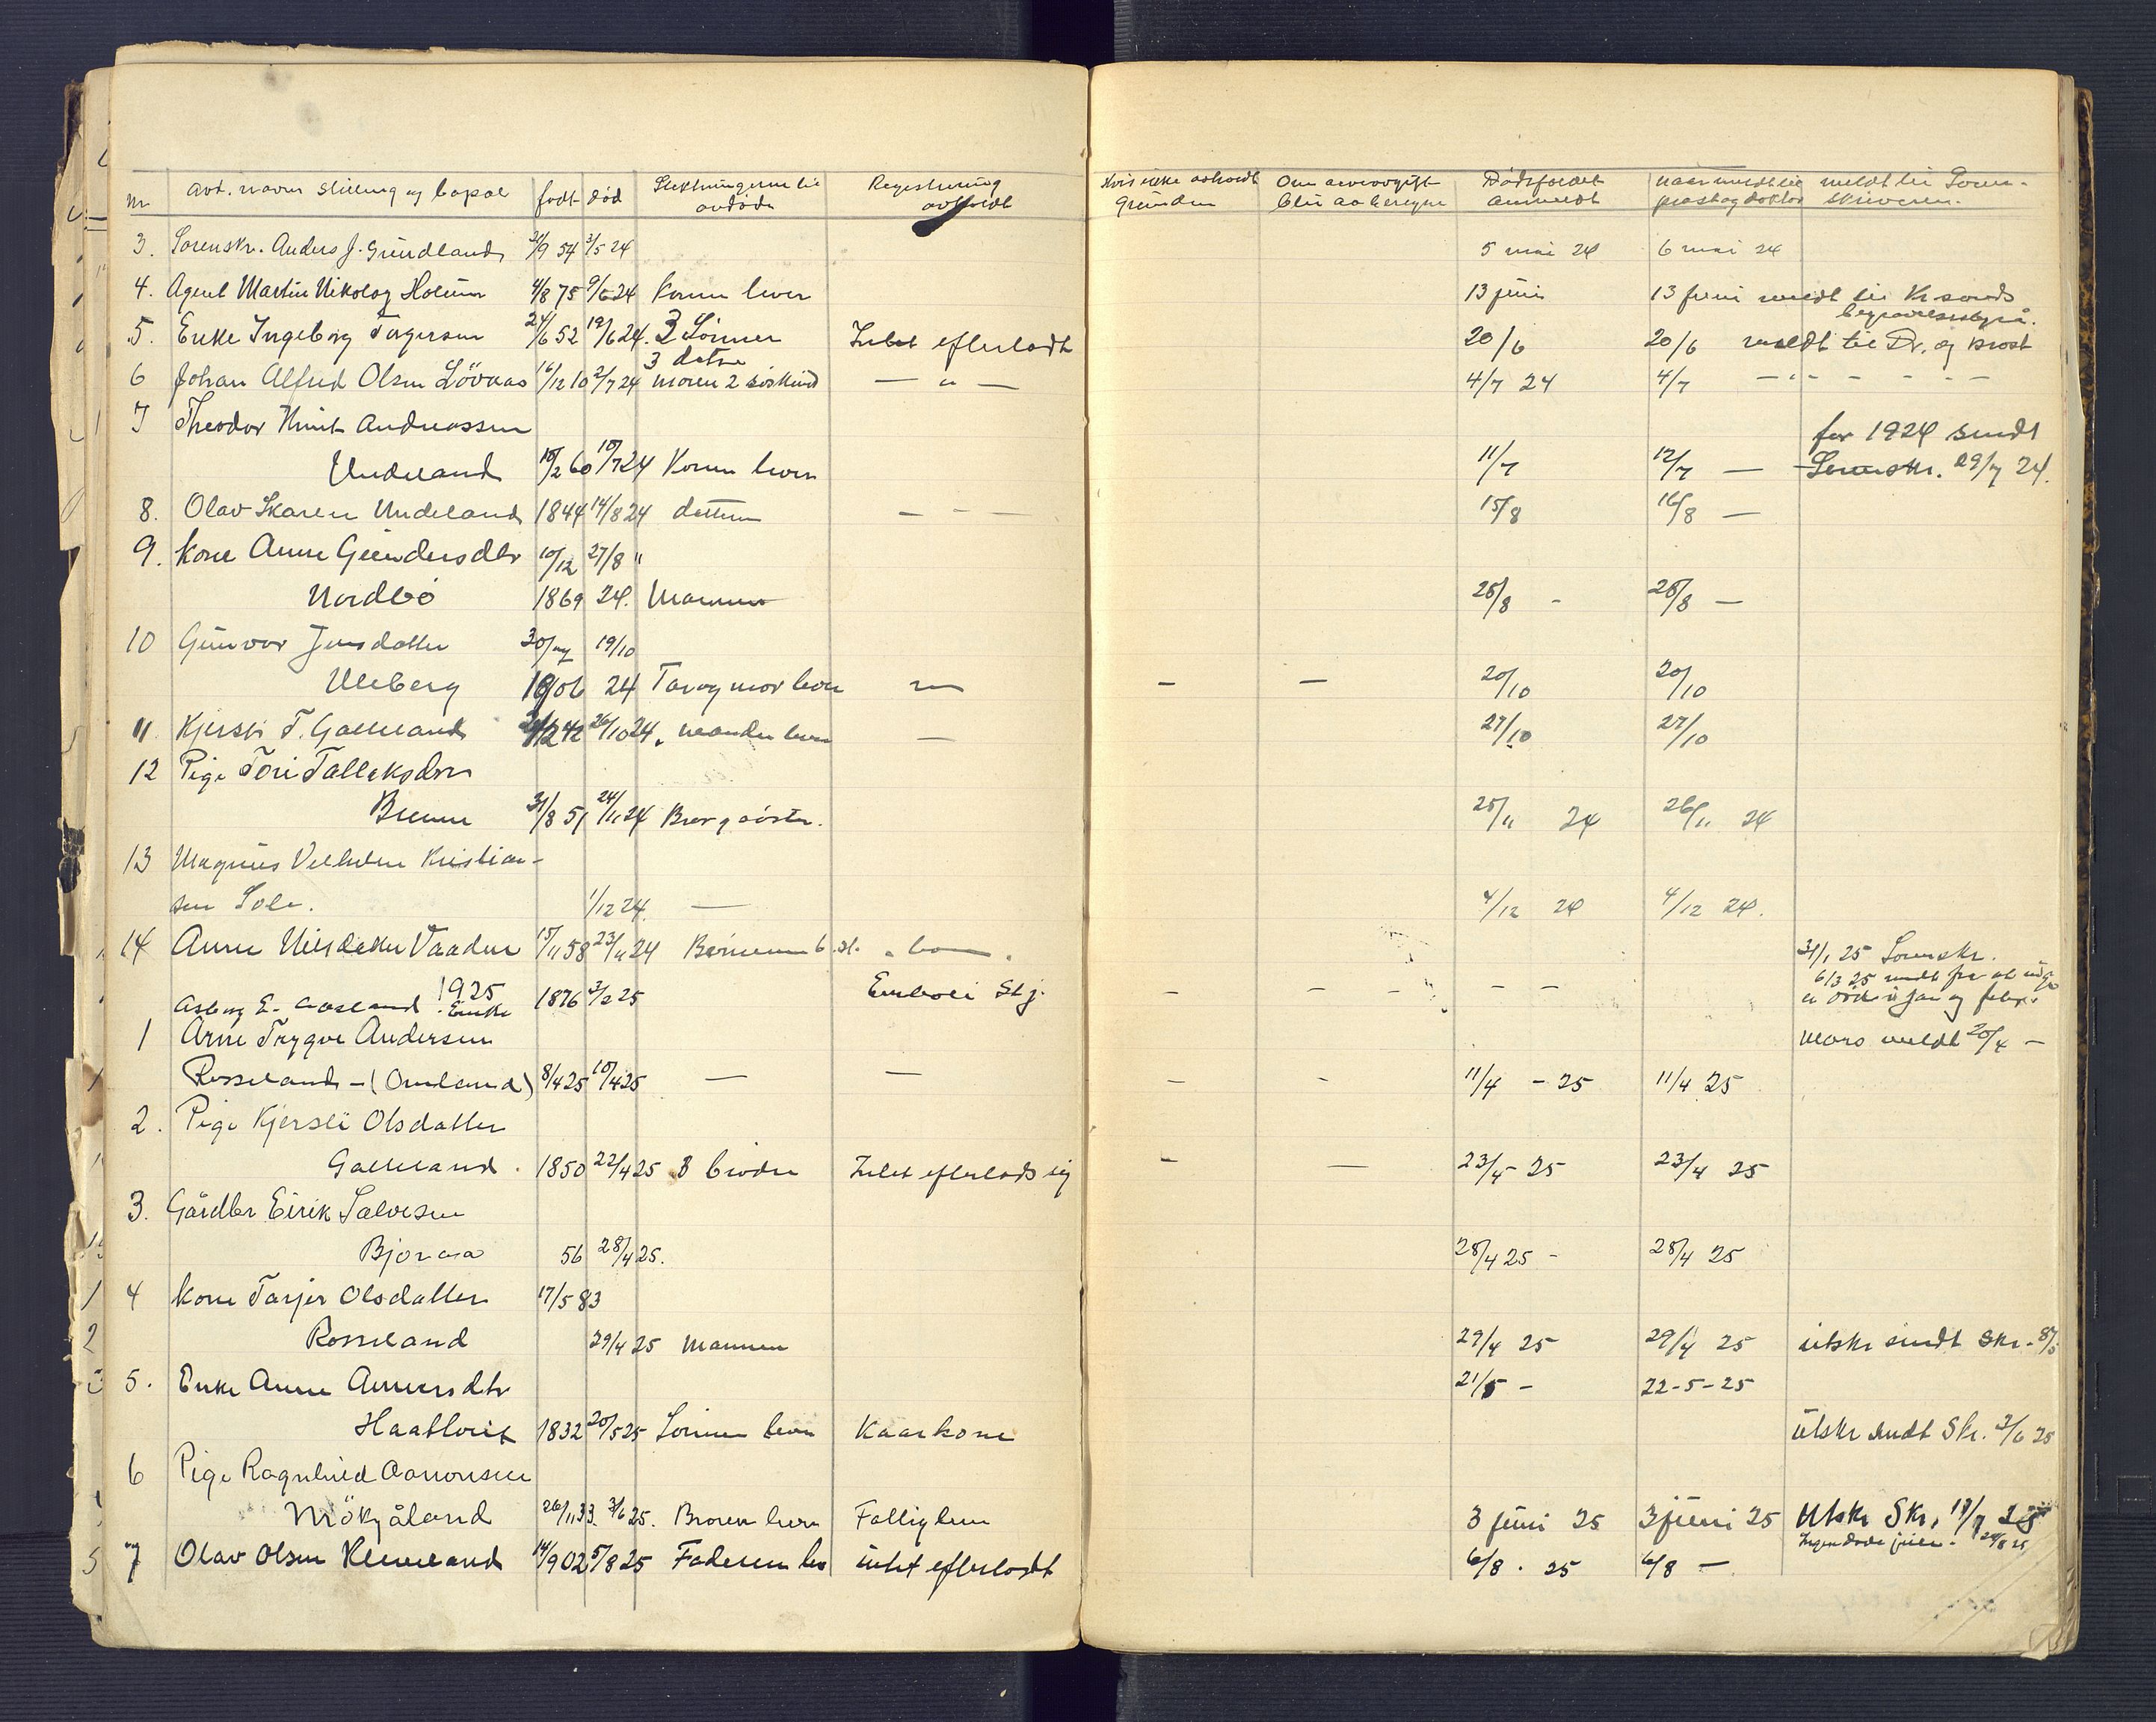 Nr. avd. navn stilling og bopæl født død Slektningerne til avdøde Registrering avholdt Hvis ikke avholdt Grunden Om arveavgift blir at beregne Dødsfaldet anmeldt naar meldt til prost og doktor meldt til Soren-skriveren.
3. Sorenskr. Anders J. Grundland /9 54 3/5 24 5 mai 24 6 mai 24
4. Agent Martin Nikolay Holum 4/8 75 9/6 24 Konen lever 13 juni 13 juni meldt til Kr.sands
5. Enke Ingeborg Torgersen 24/6 52 19/6 24. 3 Sönner Intet efterladt 20/6 20/6 meldt til Dr. og Prost
3 døtre
6 Johan Alfred Olsen Lövaas 16/12 10 2/7 24 moren 2 söskend — " — 4/7 24 4/7 — " — - - -
7 Theodor Knut Andreassen for 1924 sendt
Undeland 18/2 60 10/7 24 Konen lever 11/7 12/7 — Sorenskr. 29/7 24.
8. Olav Skaren Undeland 1844 14/8 24 datteren — - — 15/8 16/8 —
9. Kone Anne Gundersdtr 10/12 27/8 "
Nordbö 1869 24. Mannen 28/8 - 28/8 —
10 Gunvor Jensdatter 30/ 19/10
Uleberg 1906 24 Far og mor lever — — — 20/10 20/10
11. Kjersti T. Galteland /12 42 26/10 24. manden lever — 27/10 27/10
12 Pige Tori Talleksdtr
Breune 31/8 51 24/11 24 Bror og söster. 25/11 24 26/11 24
13 Magnus Vilhelm Kristian-
sen Sole. 1/12 24 — 4/12 24 4/12 24.
14 Anne Nilsdatter Vaadne 15/11 58 23/11 24 31/1 25 Sorenskr.
1925
Asborg E. Aasland Enke 1876 3/2 25 Enkebo i Stj. — - - - - 6/3 25 meldt for at ingen er döde i jan og febr.
1 Arne Trygve Andersen Mars meldt 20/4 —
Rosseland - (Omland) 8/4 25 10/4 25 — — - - 11/4 - 25 11/4 25
2. Pige Kjersti Olsdatter
Galteland. 1850 22/4 25 3 brödre Intet efterlatt sig - — 23/4 - 25 23/4 25
3. Gårdbr Eirik Salvesen
Bjoraa 56 28/4 25. 28/4 25 - 28/4 25
4 Kone Tarjer Olsdatter 17/5 83
Rosseland 29/4 25 Mannen 29/4 25 29/4 25 utskr sendt Skr. 8/5
5. Enke Anne Annersdtr 21/5 - 22-5-25
Haatveit 1832 20/5 25 Sönnen lever Kaarkone utskr sendt Skr. 3/6 25
6 Pige Ragnhild Aanonsen
Mökjåland 26/11 33. 3/6 25. Broren lever Fattiglem 3 juni 25 3 juni 25 Utskr Skr, 17/7 25
Ingen döde juli.
7 Olav Olsen Kleveland 14/9 02 5/8 25 Faderen lev intet efterladt 6/8. 25 6/8 —